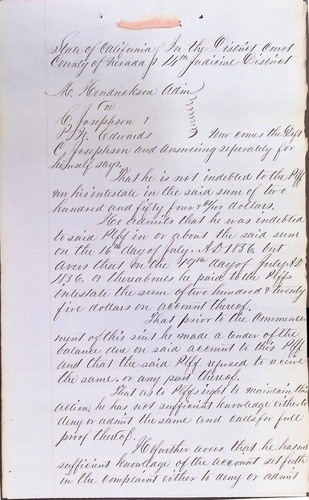 State of California } In the District Court
County of Nevada } ss 14th Judicial District
M. Hendrickson Adm
vs
C. Josephson &
P. J. Edwards } Now comes the Deft
C. Josephson and answering seperately for
himself says,
That he is not indebted to the Plff
nor his intestate in the said sum of two
hundred and fifty four dollars.
He admits that he was indebted
to said Plff in or about the said sum
on the 16th day of July A.D 1856 but
avers that on the 19th day of July A.D
1856. or thereabouts he paid to the Plffs
intestate the sum of two hundred & twenty
five dollars on account thereof.
That prior to the Commence
ment of this suit he made a tender of the
balance due on said account to this Plff
and that the said Plff refused to receive
the same or any part thereof.
That as to Plffs right to maintain this
action, he has not sufficient knowledge either to
deny or admit the same and calls for full
proof thereof.
He further avers that he has no
sufficient knowledge of the account set forth
in the complaint either to deny or admit